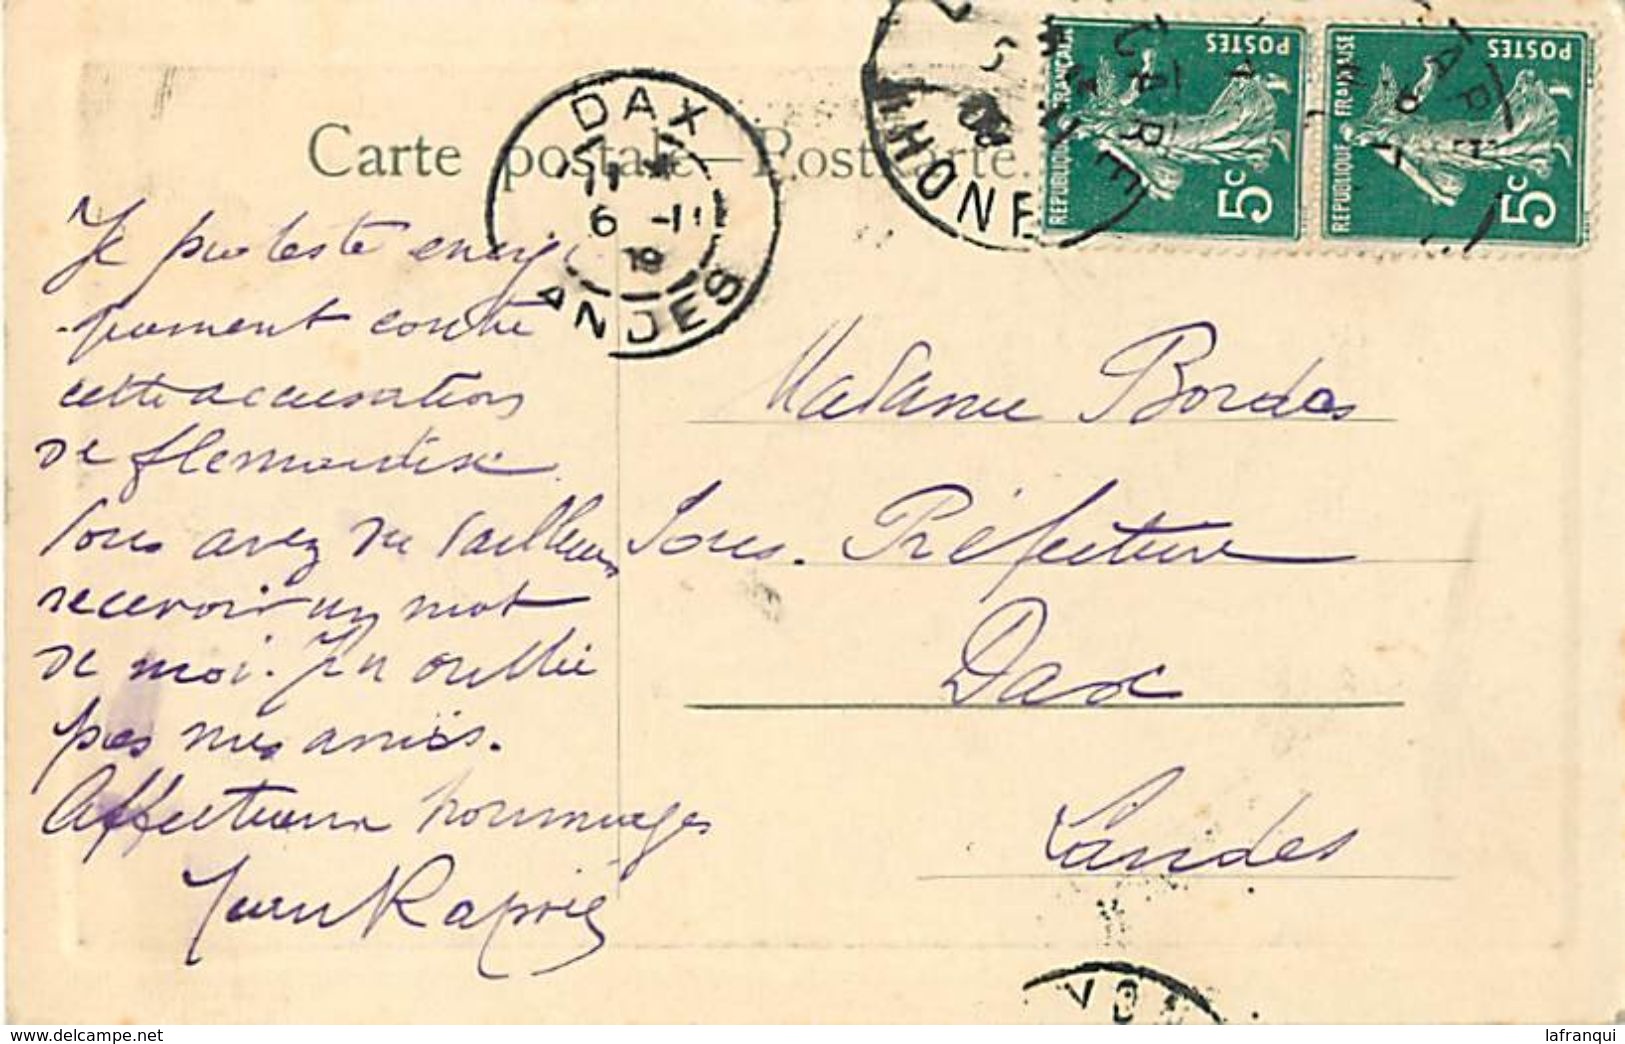 Carte postale — Postkarte.
DAX
11
6 -11
19
LANDES
RHONE
RÉPUBLIQUE FRANÇAISE
POSTES
5c
RÉPUBLIQUE FRANÇAISE
POSTES
5c
Je proteste energi
-quement contre
cette accusation
de flemardise.
Vous avez du d'ailleurs
recevoir un mot
de moi. J'n oublie
pas mes amis.
Affectueux hommages
Madame Bordes
Sous-Préfecture
Dax
Landes
www.delcampe.net
lafranqui